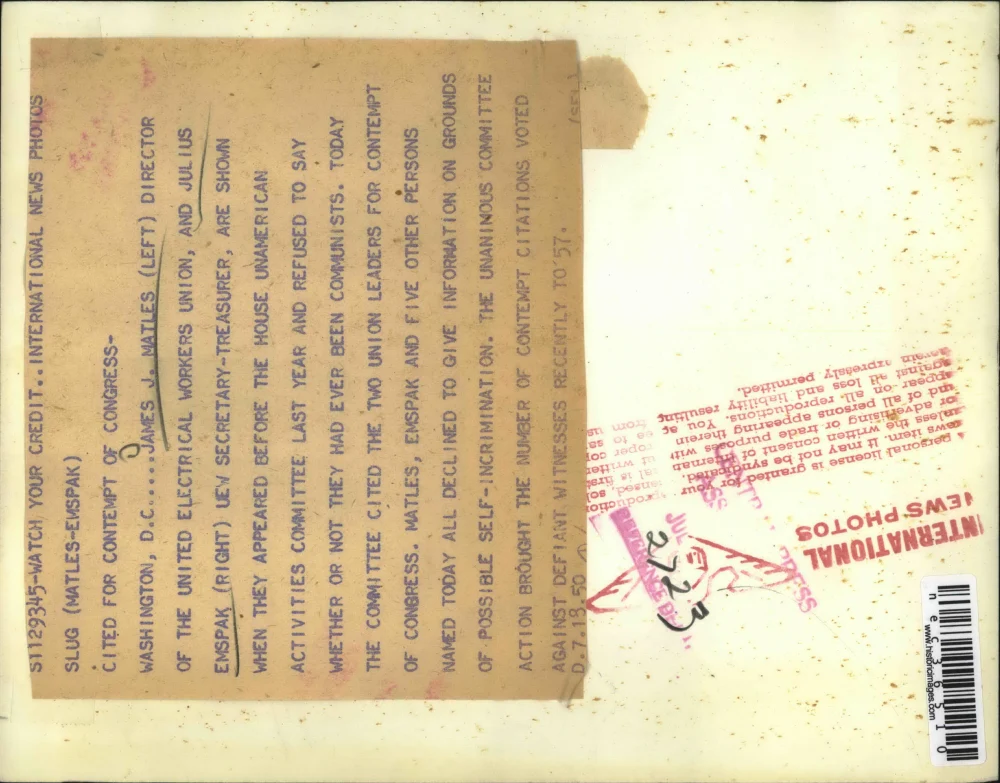 S1129345-WATCH YOUR CREDIT..INTERNATIONAL NEWS PHOTOS
SLUG (MATLES-EMSPAK)
CITED FOR CONTEMPT OF CONGRESS-
WASHINGTON, D.C.....JAMES J. MATLES (LEFT) DIRECTOR
OF THE UNITED ELECTRICAL WORKERS UNION, AND JULIUS
EMSPAK (RIGHT) UEW SECRETARY-TREASURER, ARE SHOWN
WHEN THEY APPEARED BEFORE THE HOUSE UNAMERICAN
ACTIVITIES COMMITTEE LAST YEAR AND REFUSED TO SAY
WHETHER OR NOT THEY HAD EVER BEEN COMMUNISTS. TODAY
THE COMMITTEE CITED THE TWO UNION LEADERS FOR CONTEMPT
OF CONGRESS. MATLES, EMSPAK AND FIVE OTHER PERSONS
NAMED TODAY ALL DECLINED TO GIVE INFORMATION ON GROUNDS
OF POSSIBLE SELF-INCRIMINATION. THE UNANIMOUS COMMITTEE
ACTION BROUGHT THE NUMBER OF CONTEMPT CITATIONS VOTED
AGAINST DEFIANT WITNESSES RECENTLY TO 57.
D.7.13.50
INTERNATIONAL
NEWS PHOTOS
personal license is granted for your
news item. It may not be syndicated,
unless the written consent of
or advertising or trade purposes with
and of all persons appearing therein
appear on all reproductions. You
against all loss and liability resulting
herein expressly permitted.
2723
nec36510
www.historicimages.com